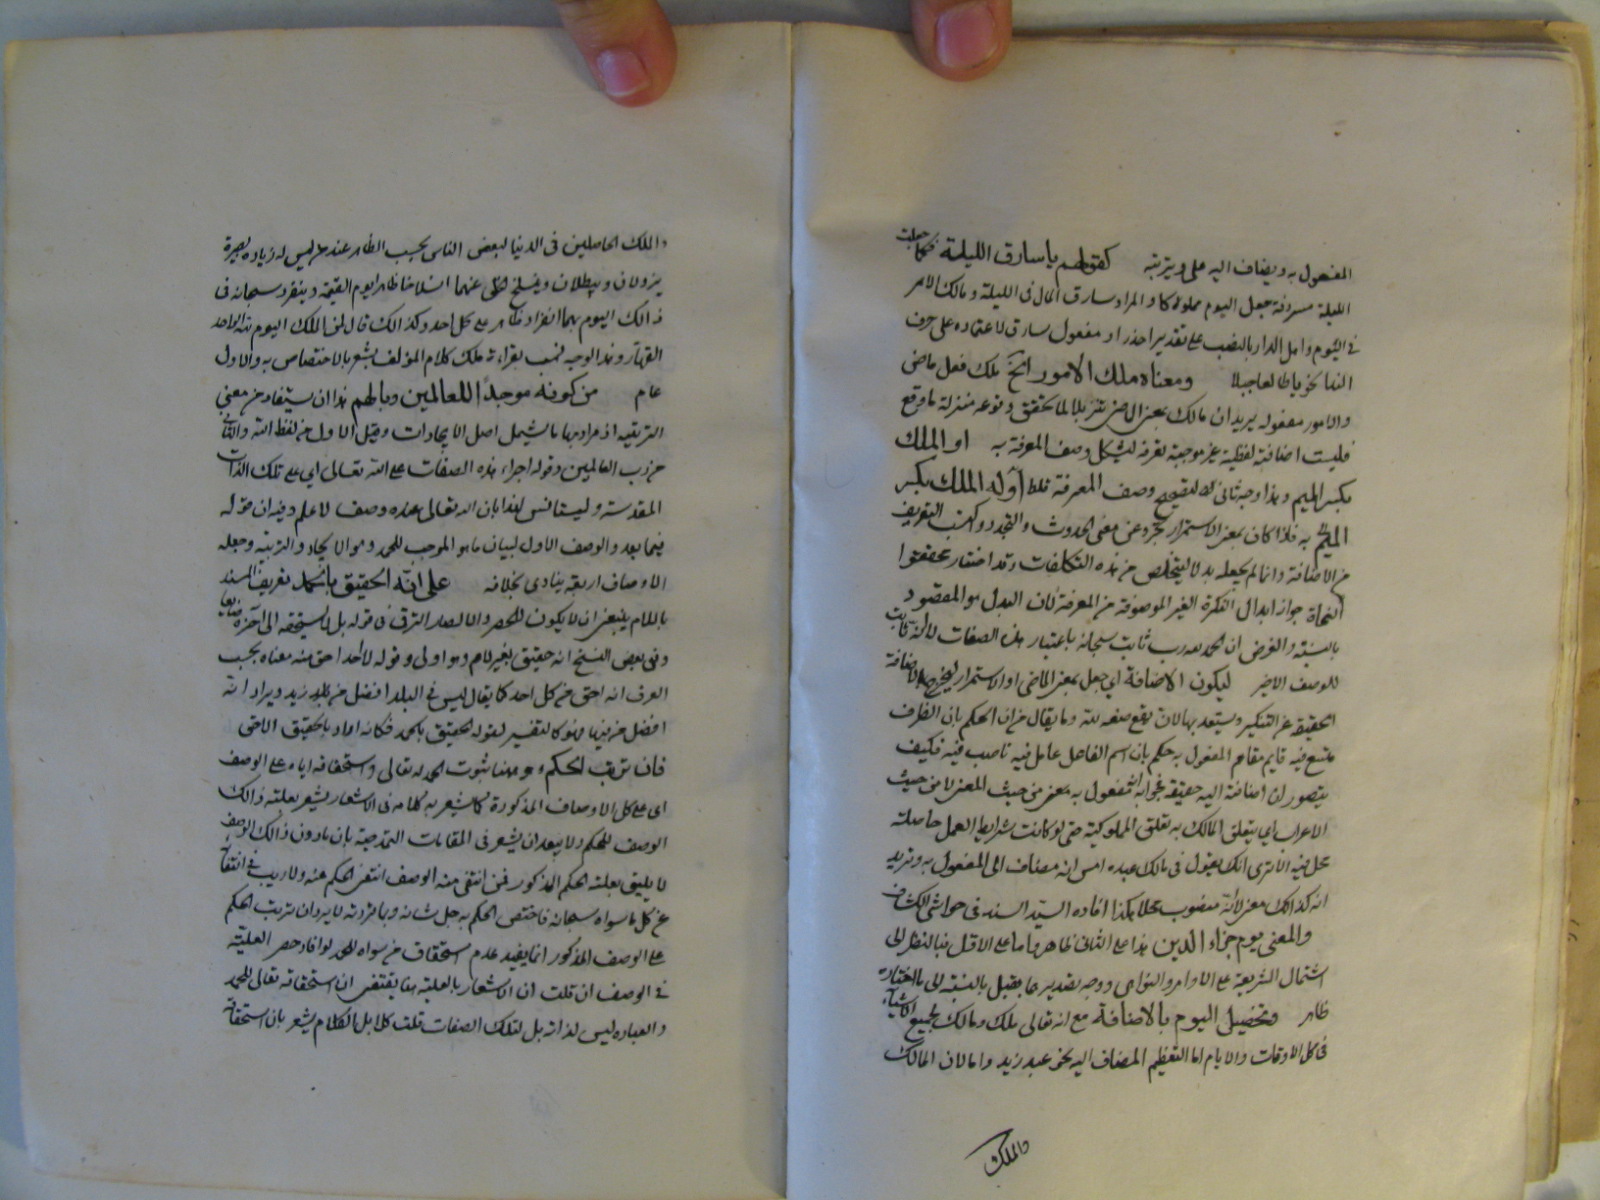 المفعول به ويضاف اليه على وتيرته كقولهم يا سارق الليلة فكما جعلت
الليلة مسروقة جعل اليوم مملوكا والمراد سارق المال فى الليلة ومالك الامر
فى اليوم واهل الدار بالنصب على تقدير احذر او مفعول سارق لاعتماده على حرف
الندا نحو يا طالعا جبلا ومعناه ملك الامور الخ ملك فعل ماضى
والامور مفعوله يريد ان مالك بمعنى الماضى تنزيلا لما تحقق وقوعه منزلة ما وقع
فليست اضافته لفظية غير موجبة تعرفه ليشكل وصف المعرفة به او الملك
بكسر الميم وهذا وجه ثانى وصف المعرفة قوله الملك بكسر
الميم به فاذا كان بمعنى الاستمرار تجرد عن معنى الحدوث والتجدد واكتسب التعريف
من الاضافة وانما لم يجعله بدلا ليتخلص من هذه التكلفات وقد اختار محققوا
النحاة جواز ابدال النكرة الغير الموصوفة من المعرفة لان البدل هو المقصود
بالنسبة والغرض ان الحمد ثابت سبحانه باعتبار هذه الصفات لا انه ثابت
للوصف الاخير ليكون الاضافة اى جعل بمعنى الماضى او الاستمرار ليخرج الاضافة
الحقيقة عن التنكير ويستعد بها لان يقع صفة لله وما يقال من ان الحكم بان الظرف
متسع فيه قايم مقام المفعول به حكم بان اسم الفاعل عامل فيه ناصب فيه فكيف
يتصور ان اضافته اليه حقيقة فجوابه انه مفعول به من حيث المعنى لا من حيث
الاعراب اى يتعلق المالك به تعلق المملوكية حتى لو كانت شرايط العمل حاصلة
عمل فيه الا ترى انك تقول فى مالك عبده امس انه مضاف الى المفعول به وتريد
انه كذلك معنى لا انه منصوب محلا هكذا افاده السيد السند فى حواشى الكشاف
والمعنى يوم جزاء الدين هذا على الثانى ظاهر واما على الاول فبالنظر الى
اشتمال الشريعة على الاوامر والنواهى ووجه تقديره بالنسبة الى ما اختاره
ظاهر وتخصيص اليوم بالاضافة مع انه تعالى ملك ومالك لجميع الاشياء
فى كل الاوقات والايام اما لتعظيم المضاف اليه نحو عبد زيد واما لان المالك
والملك
والملك الحاصلين فى الدنيا لبعض الناس بحسب الظاهر عند من ليس له زيادة بصيرة
يزولان ويبطلان وينسلخ الخلق عنهما انسلاخا ظاهرا يوم القيمة وينفرد سبحانه فى
ذالك اليوم بهما انفرادا ظاهر على كل احد وكذالك قال لمن الملك اليوم لله الواحد
القهار وهذا الوجه انسب بقراءة ملك كلام المؤلف يشعر بالاختصاص به والاول
عام من كونه موجدا للعالمين وربا لهم هذا ان يستفاد من معنى
التربية اذ مراد بها ما يشمل اصل الايجادات وقيل الاول من لفظ الله والثانى
من رب العالمين وقوله اجراء هذه الصفات على الله تعالى اى على تلك الذات
المقدسة وليستانس لهذا بان الله تعالى عنده وصف لا علم وفيه ان قوله
فيما بعد والوصف الاول لبيان ما هو الموجب للحمد وهو الايجاد والتربية وجعله
الاوصاف اربعة ينادى بخلافه على انه الحقيق بالحمد تعريف المسند
باللام ينبغى ان لا يكون للحصر والا لضاع الترقى فى قوله بل لا يستحقه الى آخره
وفى بعض النسخ انه حقيق بغير لام وهو اولى وقوله لا احد احق منه معناه بحسب
العرف انه احق من كل احد كما يقال ليس فى البلد افضل من زيد ويراد انه
افضل من فيها فهو كالتفسير لقوله الحقيق بالحمد فكانه اراد بالحقيق الاحق
فان ترتب الحكم وهو هنا ثبوت الحمد له تعالى واستحقاقه اياه على الوصف
اى على كل الاوصاف المذكورة كما يشعر به كلامه فى الاشعار يشعر بعلته ذالك
الوصف للحكم ولا يبعد ان يشعر فى المقامات المدحية بان مادون ذالك الوصف
لا يليق بعلته الحكم المذكور فمن انتفى منه الوصف انتفى الحكم عنه ولا ريب فى انتفائها
عن كل ما سواه سبحانه فاختص الحكم به جل شانه وبما قررته لا يرد ان ترتب الحكم
على الوصف المذكور انما يفيد عدم استحقاق من سواه للحمد لو افاد حصر العلية
فى الوصف ان قلت ان الاشعار بالعلية هنا يقتضى ان استحقاقه تعالى للحمد
والعبادة ليس لذاته بل لتلك الصفات قلت كلا بل الكلام يشعر بان استحقاقه